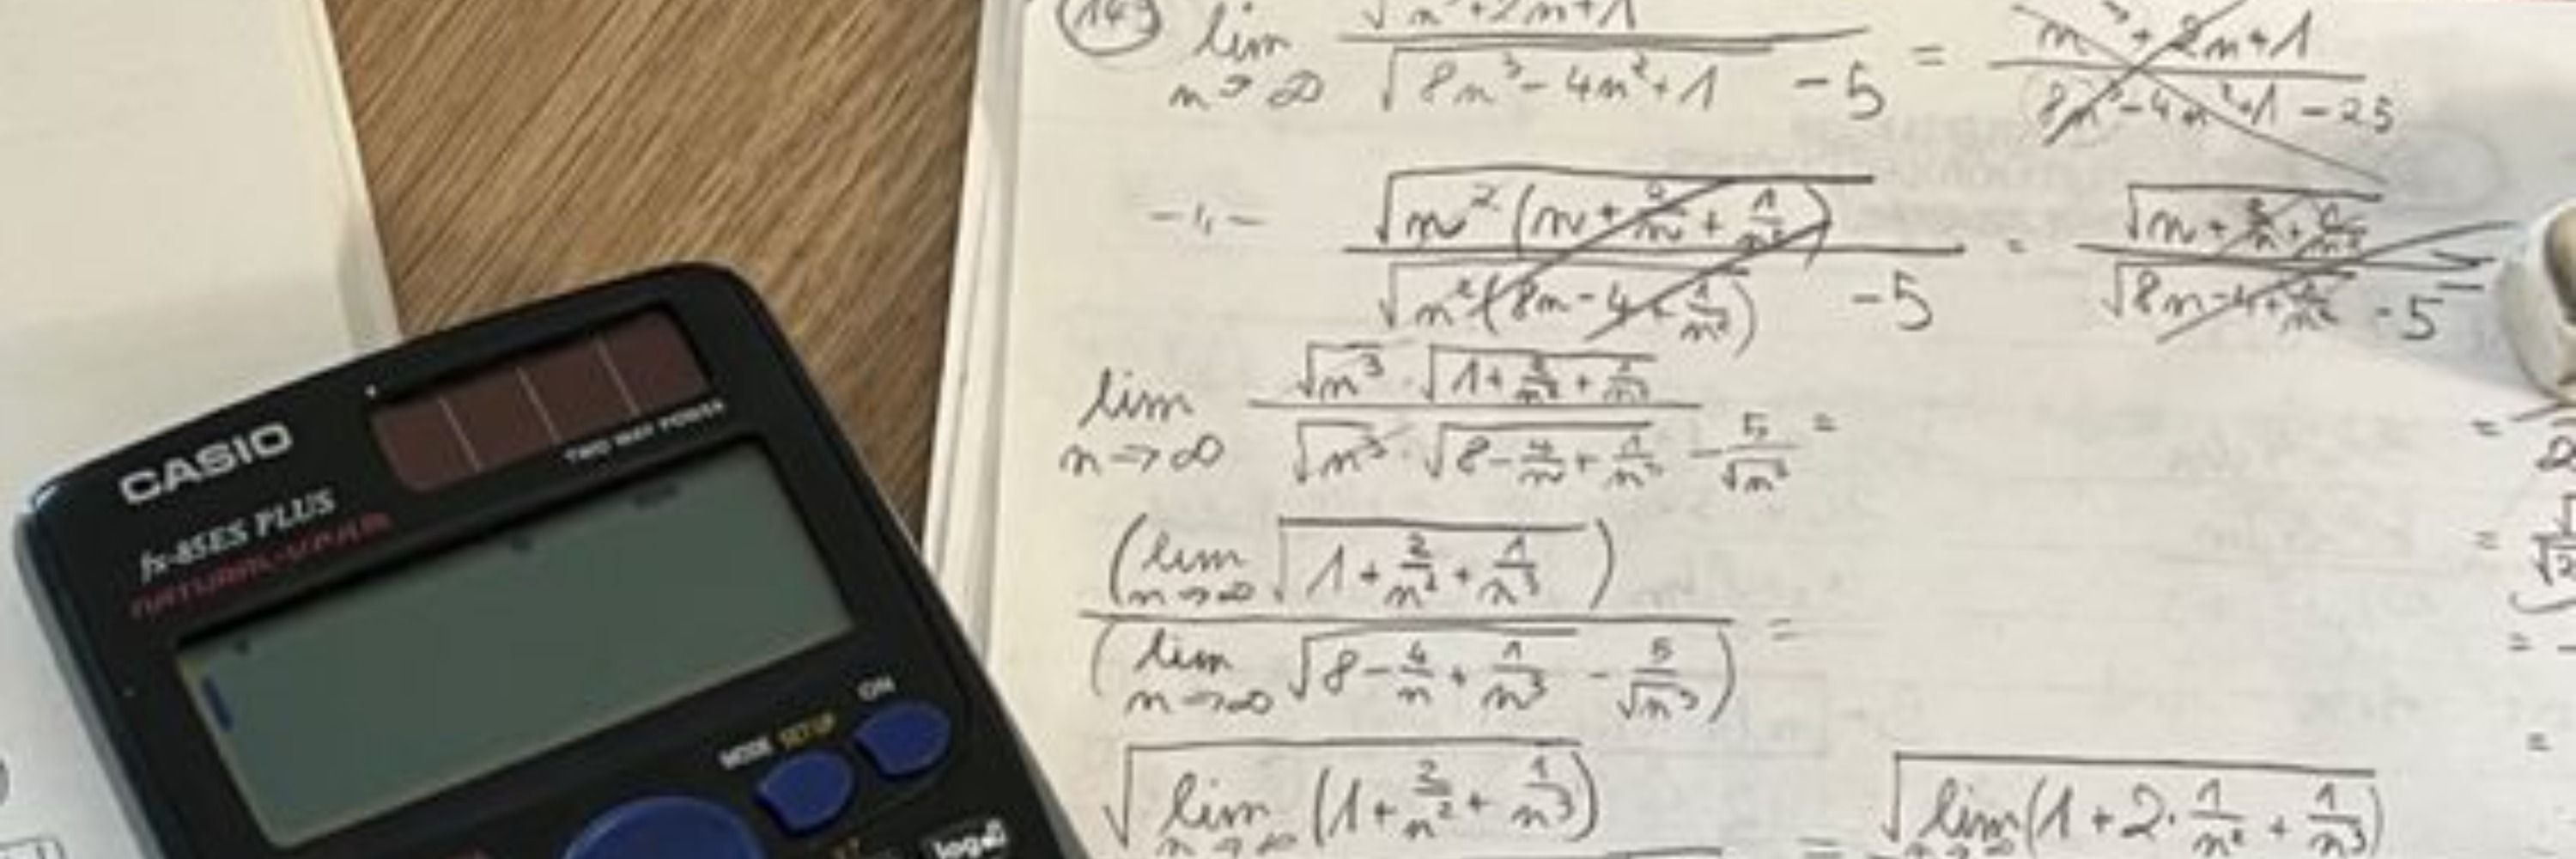 CASIO
fx-85ES PLUS
NATURAL-V.P.A.M.
TWO WAY POWER
MODE SETUP
ON
lim n→∞ √(n³+2n+1) / (√(8n³-4n²+1) -5) = (n³+2n+1) / (8n³-4n²+1-25)
-"- √(n²(n+2/n+1/n²)) / (√(n²(8n-4+1/n²)) -5) = √(n+2/n+1/n²) / (√(8n-4+1/n²) -5)
lim n→∞ (√n³ · √(1+2/n²+1/n³)) / (√n³ · √(8-4/n+1/n³) - 5/√n³) =
(lim n→∞ √(1+2/n²+1/n³)) / (lim n→∞ √(8-4/n+1/n³) - 5/√n³) =
√(lim n→∞ (1+2/n²+1/n³)) = √(lim n→∞ (1+2·1/n²+1/n³))